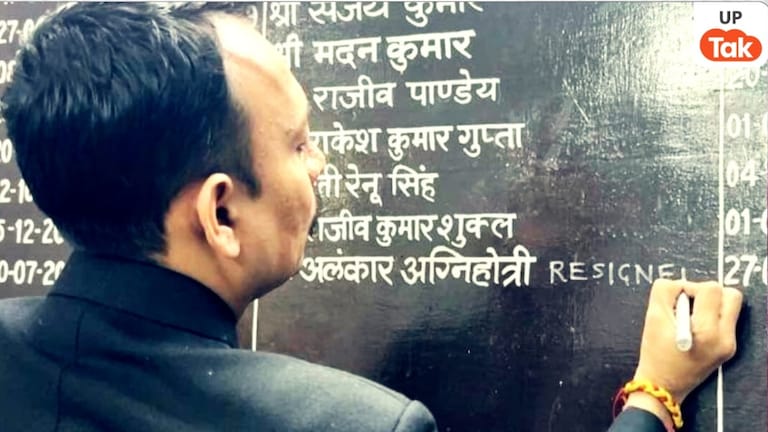 UP
Tak
27-0 श्री संजय कुमार
मदन कुमार
राजीव पाण्डेय
राकेश कुमार गुप्ता 01-0
रेनू सिंह 04-
5-12-20 राजीव कुमार शुक्ल 01-0
0-07-20 अलंकार अग्निहोत्री RESIGNE 27-